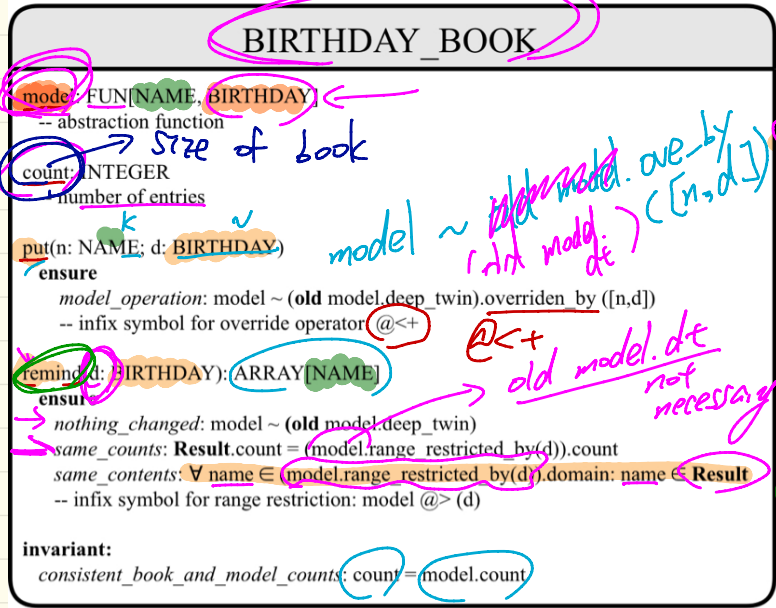 BIRTHDAY_BOOK
model: FUN[NAME, BIRTHDAY]
-- abstraction function
size of book
count: INTEGER
-- number of entries
k
v
put(n: NAME; d: BIRTHDAY)
model ~ old model.ove_by ([n,d])
(old model.dt)
ensure
model_operation: model ~ (old model.deep_twin).overriden_by ([n,d])
-- infix symbol for override operator @<+
@<+
remind(d: BIRTHDAY): ARRAY[NAME]
old model.dt
not
necessary
ensure
nothing_changed: model ~ (old model.deep_twin)
same_counts: Result.count = (model.range_restricted_by(d)).count
same_contents: ∀ name ∈ (model.range_restricted_by(d)).domain: name ∈ Result
-- infix symbol for range restriction: model @> (d)
invariant:
consistent_book_and_model_counts: count = model.count